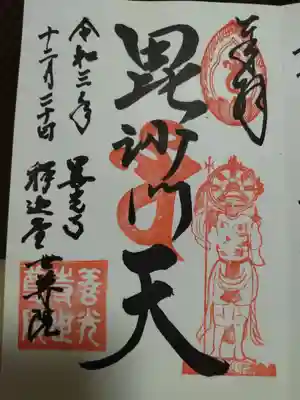 奉拝
毘沙門天
令和三年
十二月二十日
善光寺
釈迦堂世尊院
善光
寺世
尊院